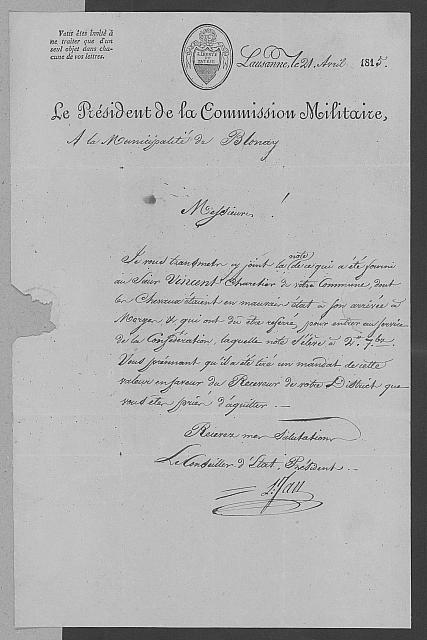 Vous êtes invité à
ne traiter que d'un
seul objet dans cha-
cune de vos lettres.
LIBERTÉ
ET
PATRIE
Lausanne, le 21. Avril 1815.
Le Président de la Commission Militaire,
A la Municipalité de Blonay
Messieurs !
Je vous transmets cy joint la note de ce qui a été fourni
au Sieur Vincent Chartier de votre Commune dont
les Chevaux étaient en mauvais état à son arrivée à
Morges & qui ont du être referré, pour entrer au service
de la Confédération, laquelle note s'élève à
Vous prévenant qu'il a été tiré un mandat de cette
valeur en faveur du Receveur de votre District que
vous êtes prier d'aquitter. —
Recevez mes Salutations
Le Conseiller d'Etat, Président. —